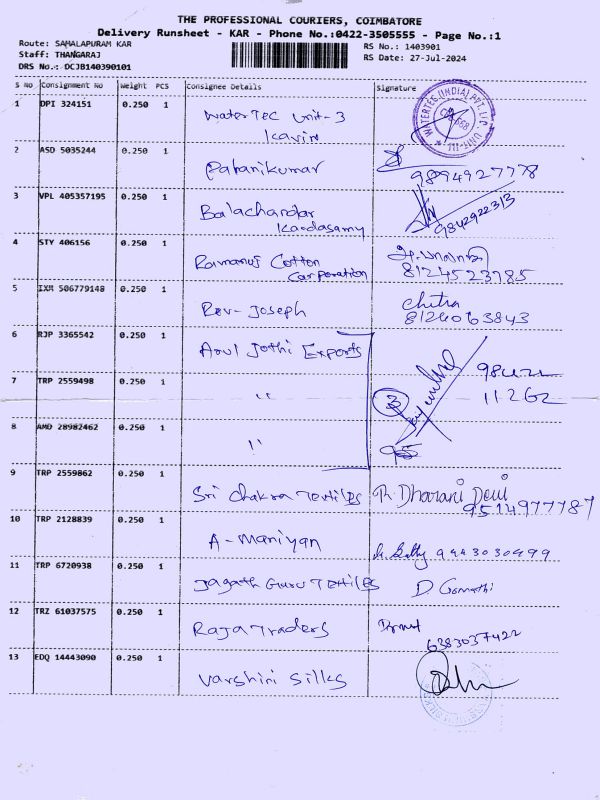 THE PROFESSIONAL COURIERS, COIMBATORE
Delivery Runsheet - KAR - Phone No.:0422-3505555 - Page No.:1
Route: SAMALAPURAM KAR
RS No.: 1403901
Staff: THANGARAJ
RS Date: 27-Jul-2024
DRS No.: DCJB140390101
S No Consignment No Weight PCS Consignee Details Signature
1 DPI 324151 0.250 1 Water Tec Unit-3
Kavin
WATERTEC (INDIA) PVT. LTC. UNIT-III
2 ASD 5035244 0.250 1 Palanikumar 9894927778
3 VPL 405357195 0.250 1 Balachandar
Kandasamy 9842922313
4 STY 406156 0.250 1 Ramanuj Cotton
Carporation 8124523785
5 IXM 506779148 0.250 1 Rev- Joseph Chitra
8124063843
6 RJP 3365542 0.250 1 Arul Jothi Exports
7 TRP 2559498 0.250 1 " 3 11262
8 AMD 28982462 0.250 1 "
9 TRP 2559862 0.250 1 Sri Chakra Textiles R. Dharani Devi
9514977787
10 TRP 2128839 0.250 1 A-Maniyan 9443030499
11 TRP 6720938 0.250 1 Jagath Guru Textiles D. Gomathi
12 TRZ 61037575 0.250 1 Raja Traders
6383037422
13 EDQ 14443090 0.250 1 Varshini Silks